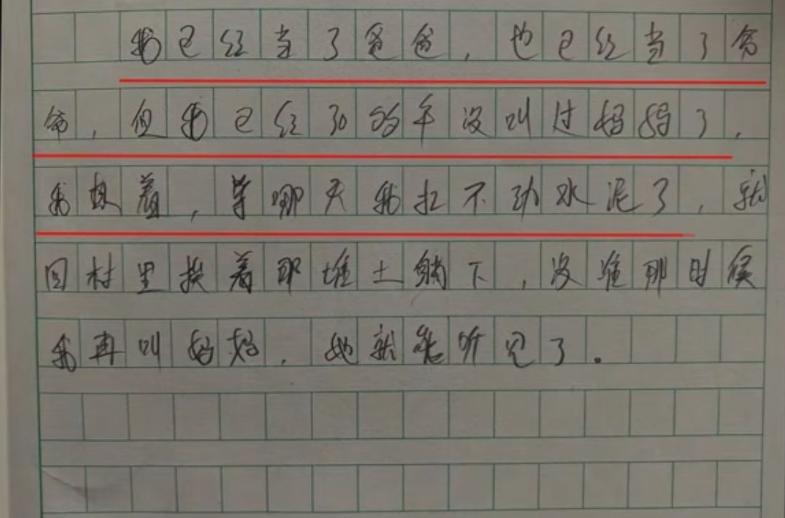 我已经当了爸爸，也已经当了爷
爷，但我已经30的年没叫过妈妈了，
我想着，等哪天我扛不动水泥了，就
回村里挨着那堆土躺下，没准那时候
我再叫妈妈，她就能听见了。